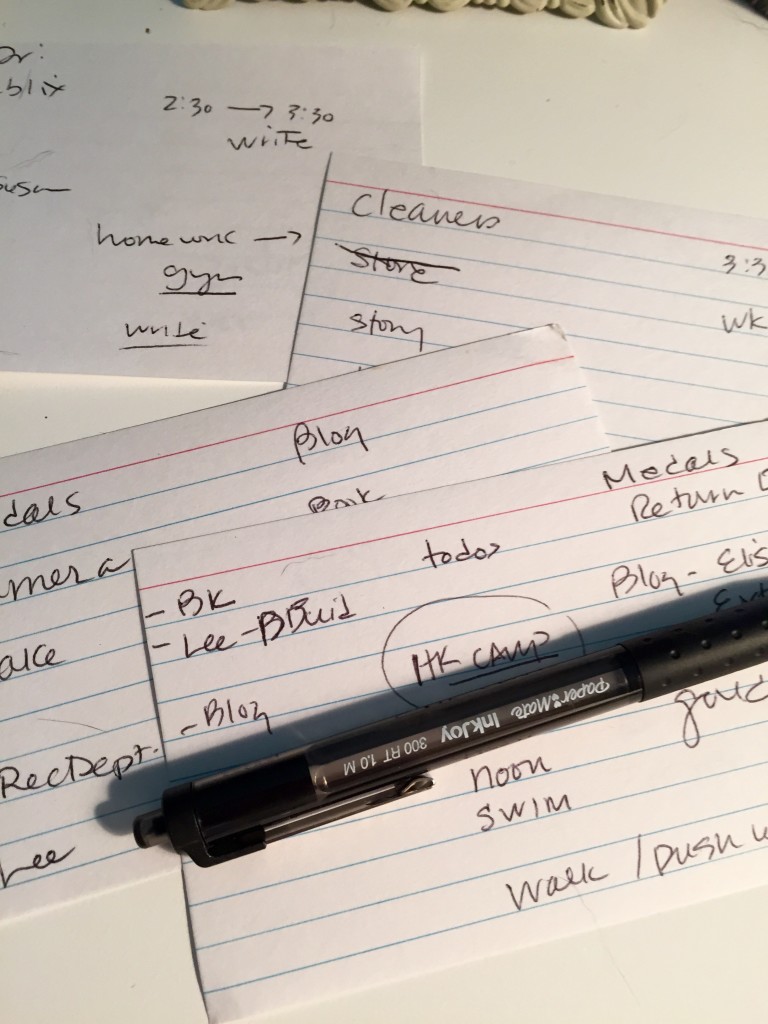 or:
blix
2:30 → 3:30
write
Susan
homework →
gym
write
Cleaners
Store
3:3
Story
wk
Blog
Bank
dals
mera
ake
RecDept.
Lee
Medals
Return
todos
- BK
Blog - Elis
- Lee - BBuild
HK CAMP
- Blog
Paper Mate InkJoy 300 RT 1.0 M
noon
swim
walk / push u